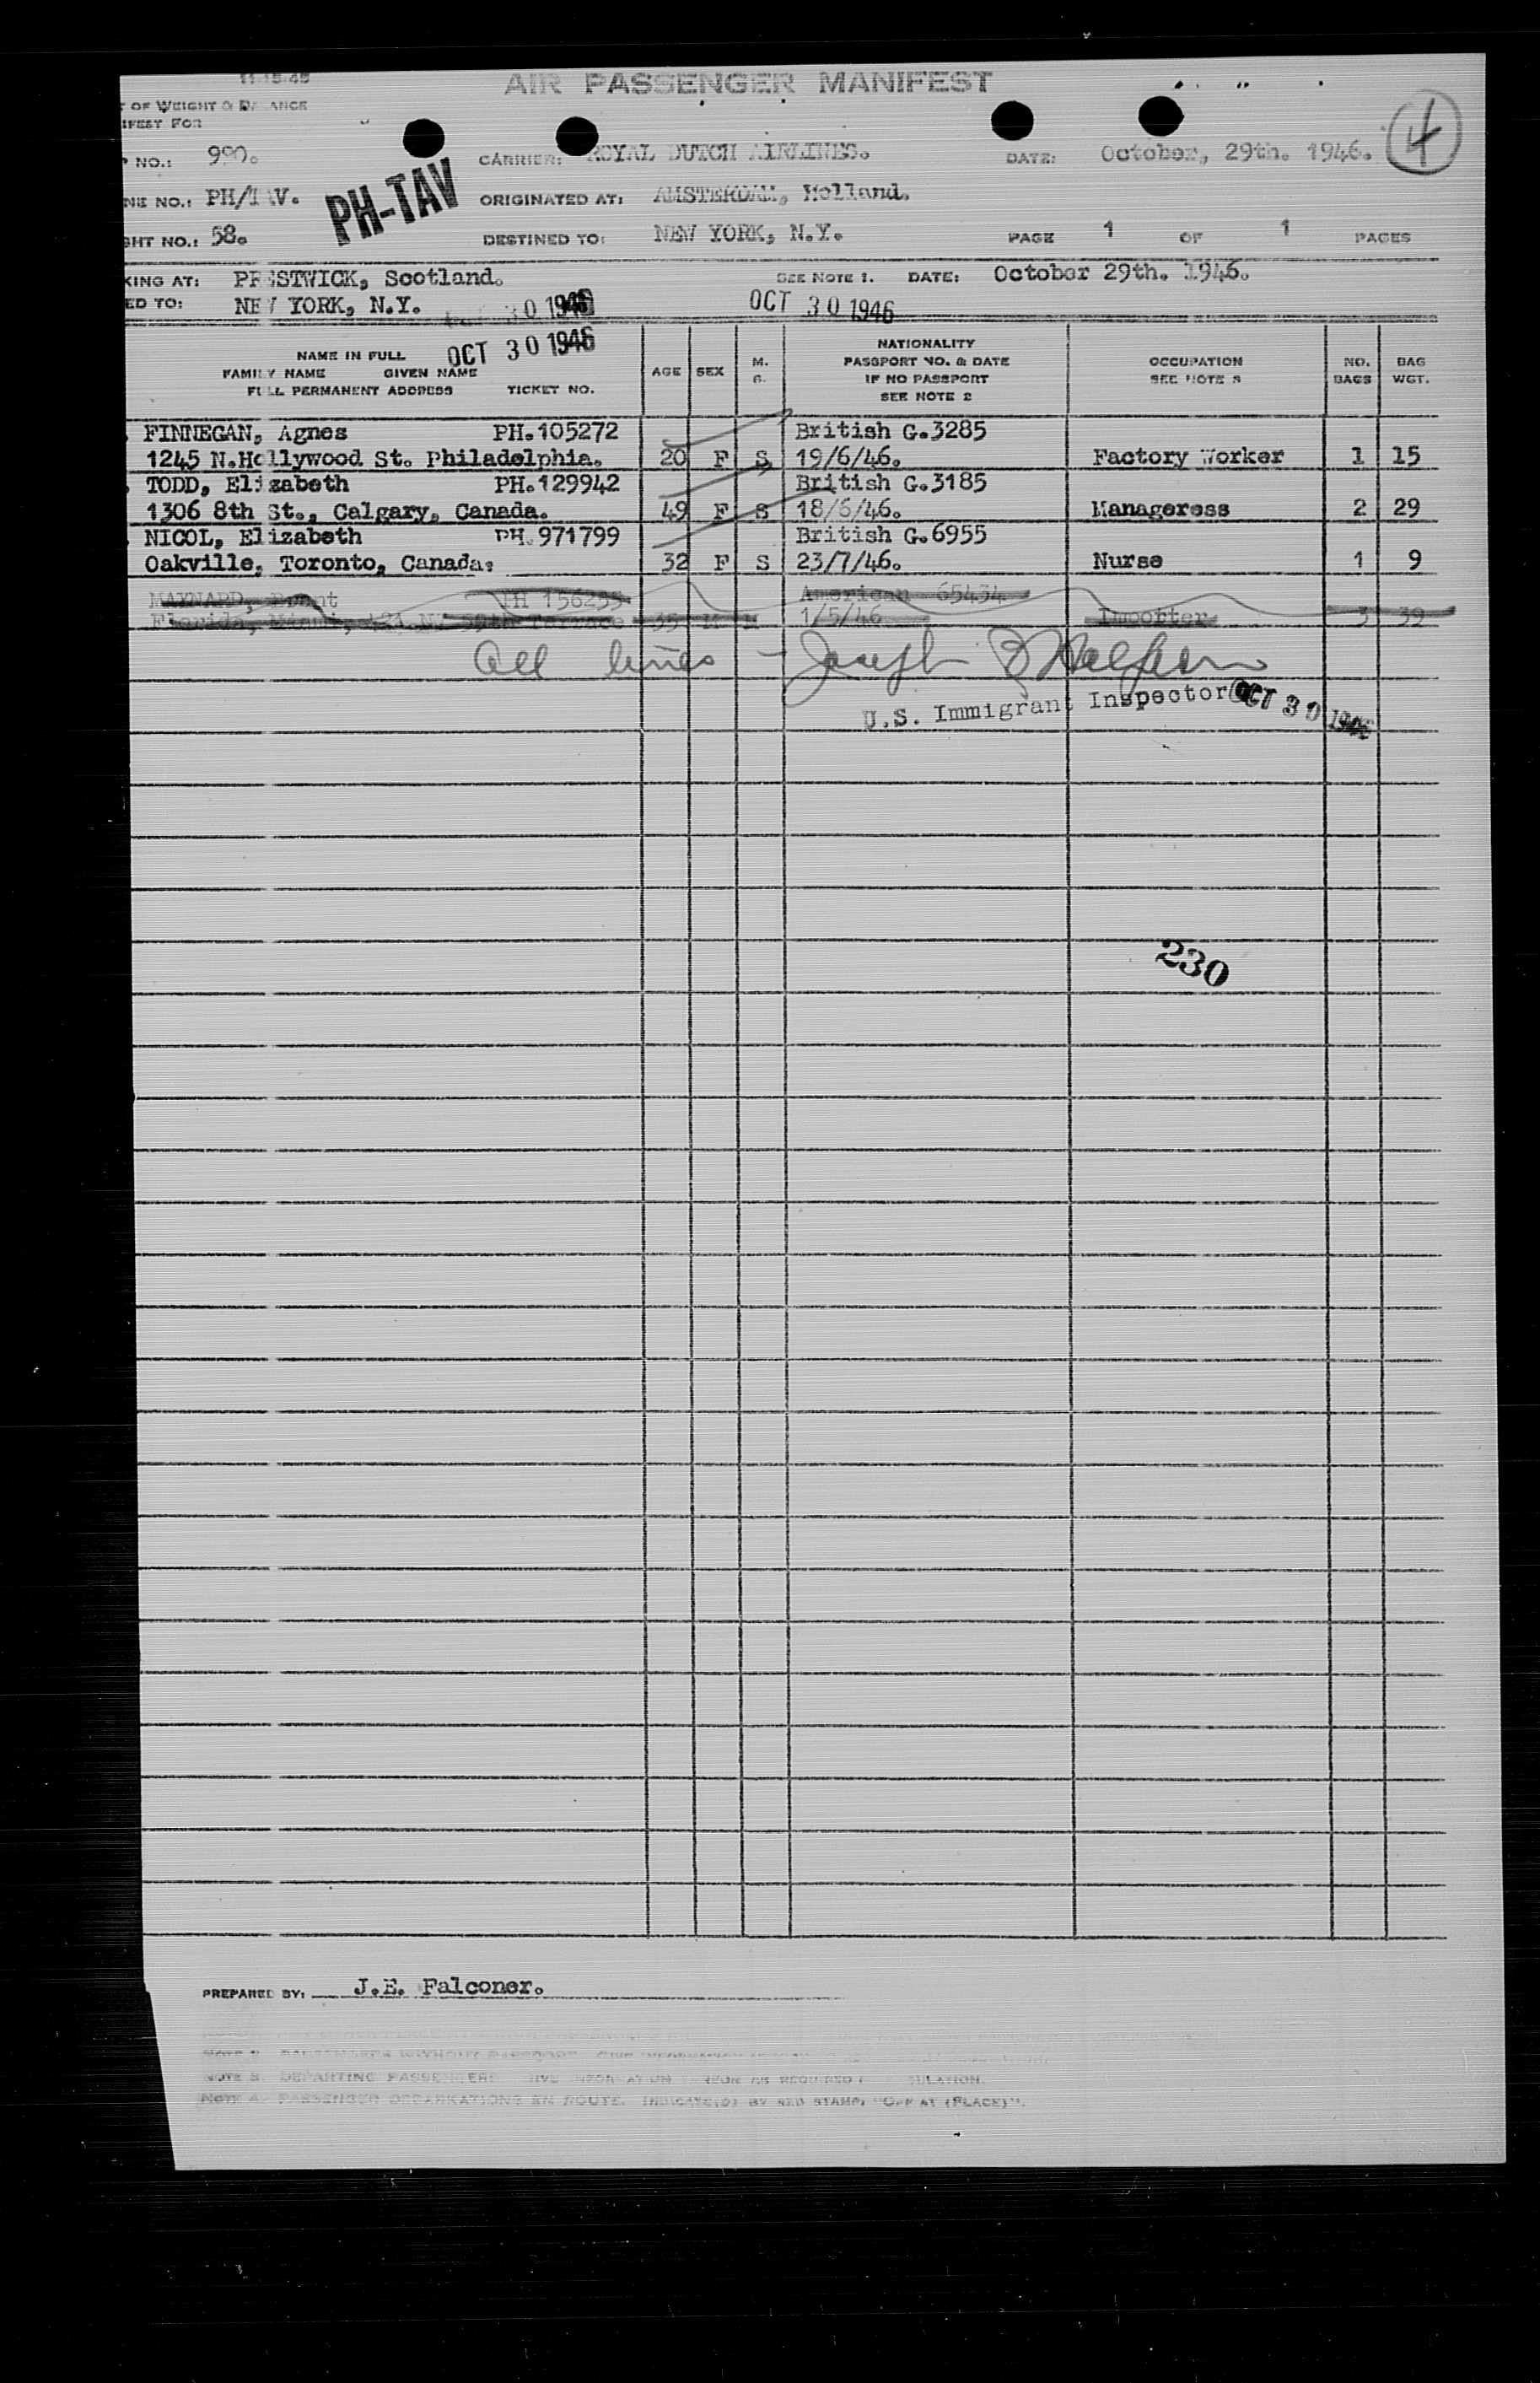 11-15-45
AIR PASSENGER MANIFEST
OF WEIGHT & BALANCE
IFEST FOR
NO.: 990. CARRIER: ROYAL DUTCH AIRLINES. DATE: October, 29th. 1946. 4
NE NO.: PH/TAV. PH-TAV ORIGINATED AT: AMSTERDAM, Holland.
GHT NO.: 58. DESTINED TO: NEW YORK, N.Y. PAGE 1 OF 1 PAGES
KING AT: PRESTWICK, Scotland. SEE NOTE 1. DATE: October 29th. 1946.
ED TO: NEW YORK, N.Y. 30 1946 OCT 30 1946
OCT 30 1946
NAME IN FULL
FAMILY NAME GIVEN NAME
FULL PERMANENT ADDRESS TICKET NO.
AGE SEX M. S.
NATIONALITY
PASSPORT NO. & DATE
IF NO PASSPORT
SEE NOTE 2
OCCUPATION
SEE NOTE 3
NO. BAGS
BAG WGT.
FINNEGAN, Agnes PH.105272 British G.3285
1245 N.Hollywood St. Philadelphia. 20 F S 19/6/46. Factory Worker 1 15
TODD, Elizabeth PH.129942 British G.3185
1306 8th St., Calgary, Canada. 49 F S 18/6/46. Manageress 2 29
NICOL, Elizabeth PH.971799 British G.6955
Oakville, Toronto, Canada. 32 F S 23/7/46. Nurse 1 9
MAYNARD, PH 156255 American 65434
Florida, Miami, 35 M M 1/5/46 Importer 3 39
All lines - Joseph
U.S. Immigrant Inspector OCT 30 1946
230
PREPARED BY: J.E. Falconer.
NOTE 3. DEPARTING PASSENGERS GIVE INFORMATION AS REQUIRED
NOTE 4. PASSENGER DEBARKATIONS EN ROUTE. INDICATE(D) BY RED STAMP, "OFF AT (PLACE)".